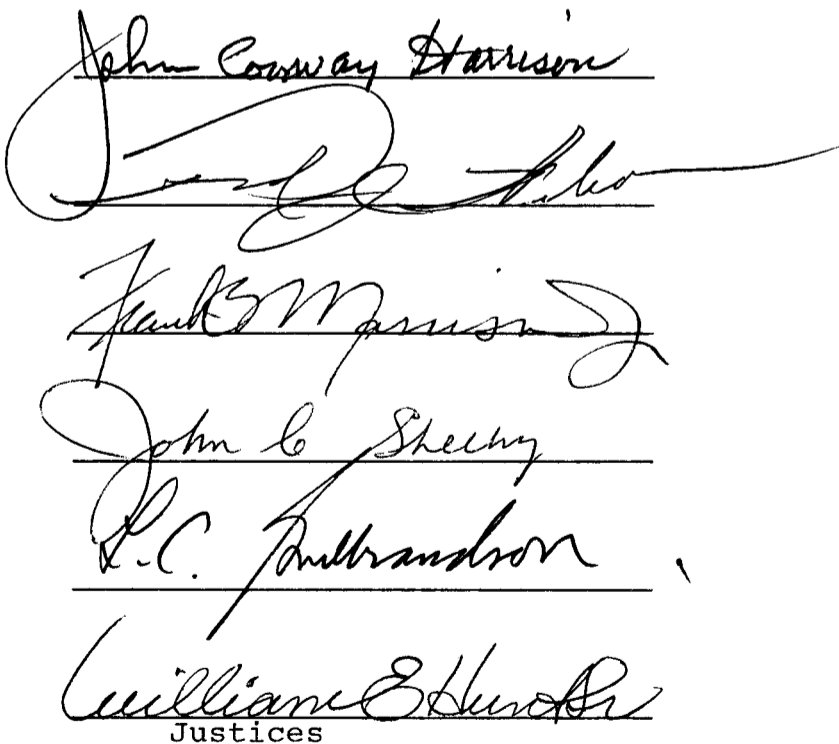 John Conway Harrison
Frank B Morrison Jr
John C Sheehy
L.C. Gulbrandson
William E Hunt Sr
Justices